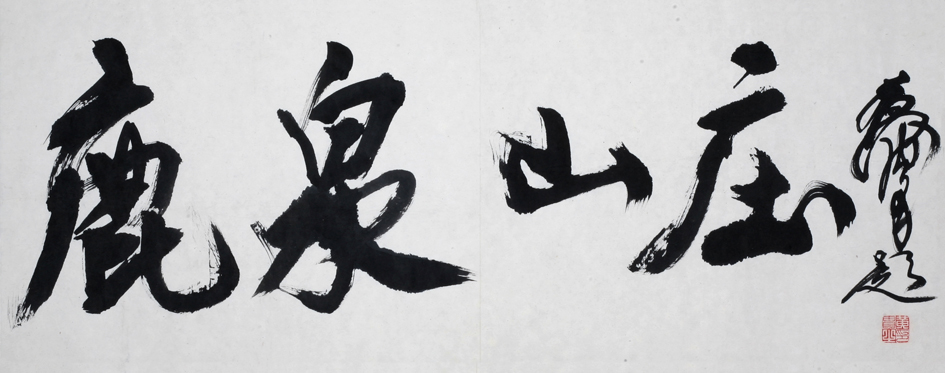 鹿泉山庄
题